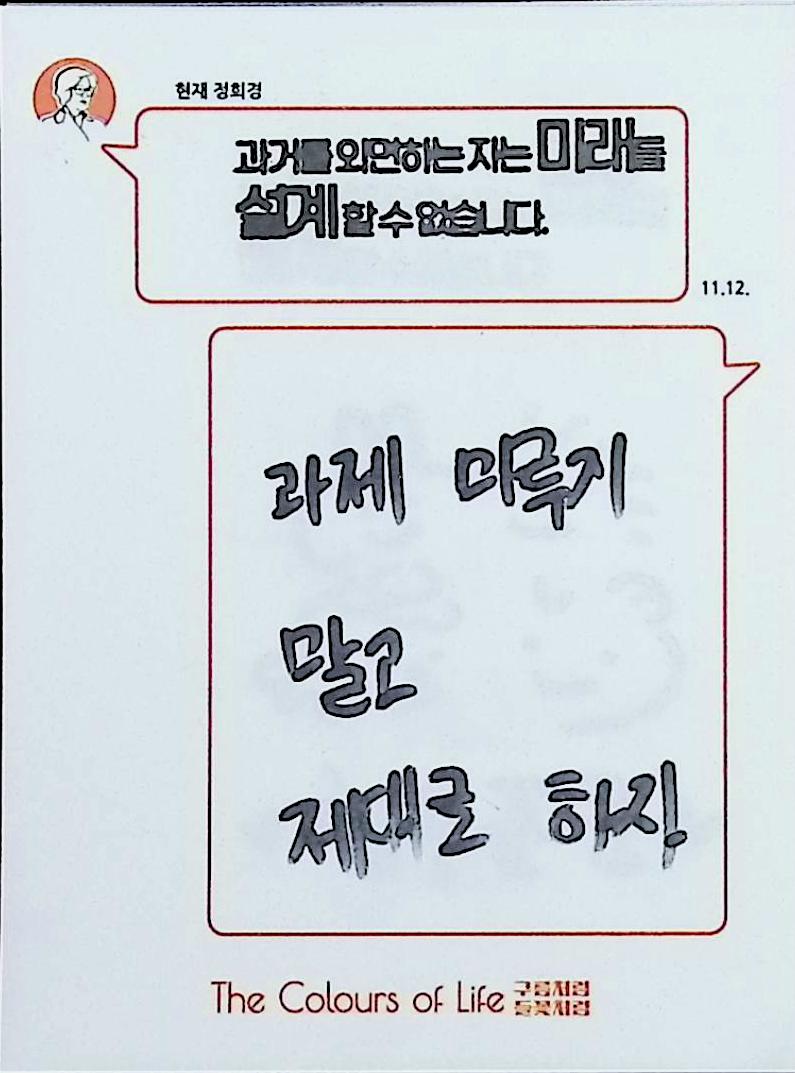 현재 정희경
과거를 외면하는 자는 미래를
설계 할 수 없습니다.
11.12.
과제 미루기
말고
제대로 하자!
The Colours of Life 구름처럼
들꽃처럼